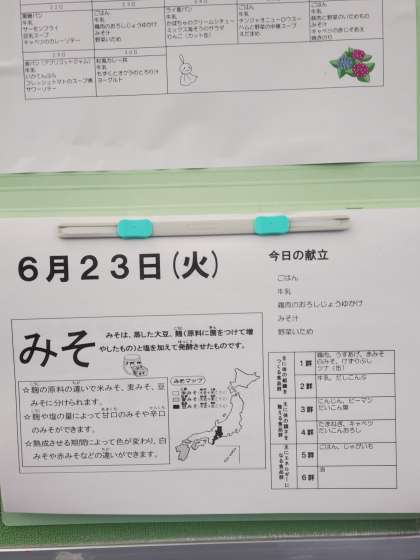 ２２日
黒糖パン
牛乳
サーモンフライ
豆乳スープ
キャベツのカレーソテー
ごはん
牛乳
鶏肉のおろしじょうゆかけ
みそ汁
野菜いため
ライ麦パン
牛乳
かぼちゃのクリームシチュー
ミックス海そうのサラダ
りんご（カット缶）
ごはん
牛乳
チンジャオニューロウスー
ハムと野菜の中華スープ
えだまめ
ごはん
牛乳
豚肉と野菜のいためもの
みそ汁
キャベツの赤じそあえ
焼きのり
２９日
食パン（アプリコットジャム）
牛乳
いかてんぷら
フレッシュトマトのスープ煮
サワーソテー
３０日
和風カレー丼
牛乳
もずくとオクラのとろり汁
ヨーグルト
６月２３日(火)
今日の献立
ごはん
牛乳
鶏肉のおろしじょうゆかけ
みそ汁
野菜いため
みそ
みそは、蒸した大豆、麹(原料に菌をつけて増
やしたもの)と塩を加えて発酵させたものです。
☆麹の原料の違いで米みそ、麦みそ、豆
みそに分けられます。
☆麹や塩の量によって甘口のみそや辛口
のみそができます。
☆熟成させる期間によって色が変わり、白
みそや赤みそなどの違いができます。
みそマップ
主に体の組織を
つくる食品群
１群
鶏肉、うすあげ、赤みそ
白みそ、けずりぶし
ツナ（缶）
２群
牛乳、だしこんぶ
主に体の調子を
整える食品群
３群
にんじん、ピーマン
だいこん葉
４群
たまねぎ、キャベツ
だいこんおろし
主にエネルギーに
なる食品群
５群
ごはん、じゃがいも
６群
油